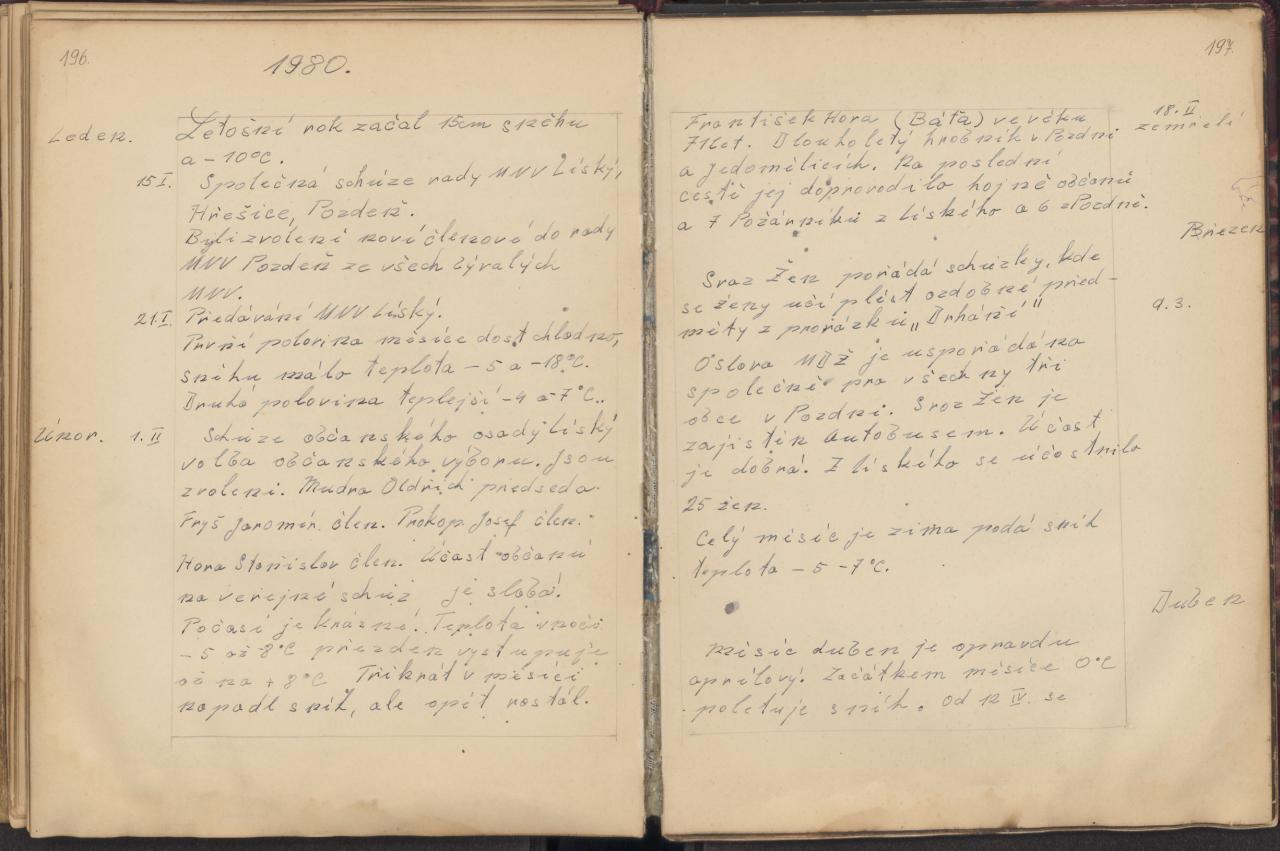 196.
1980.
Leden.
Letošní rok začal 15cm sněhu
a -10°C.
15 I.
Společná schúze rady MNV Lísky,
Hřešice, Pozdeň.
Byli zvoleni noví členové do rady
MNV Pozdeň ze všech bývalých
MNV.
21.I.
Předávání MNV Lísky.
První polovina měsíce dost chladno,
sněhu málo teplota -5 a -18°C.
Druhá polovina teplejší -4 a -7°C..
Únor. 1. II
Schúze občanského osady Lísky
volba občanského výboru. Jsou
zvoleni. Mudra Oldřich předseda.
Fryš Jaromír. člen. Prokop Josef člen.
Hora Stanislav člen. Účast občanú
na veřejné schúzi je slabá.
Počasí je krásné. Teplota v noci
-5 až -8°C přes den vystupuje
až na +8°C Třikrát v měsíci
napadl sníh, ale opět rostál.
197.
18. II
zemřeli
František Hora (Báťa) ve věku
71 let. Dlouholetý hrobník v Pozdni
a Jedomělicích. Na poslední
cestě jej doprovodilo hojně občanú
a 7 Požárníkú z Lískeho a 6 z Pozdně.
Březen
Svaz Žen pořádá schúzky, kde
se ženy učí plést ozdobné před-
měty z provázkú „Drhání"
9. 3.
Oslava MDŽ je uspořádána
společně pro všechny tři
obce v Pozdni. Svaz Žen je
zajištěn autobusem. Účast
je dobrá. Z Lískeho se účastnilo
25 žen.
Celý měsíc je zima padá sníh
teplota -5 -7°C.
Duben
Měsíc duben je opravdu
aprílový. Začátkem měsíce 0°C
poletuje sníh. Od IV. se